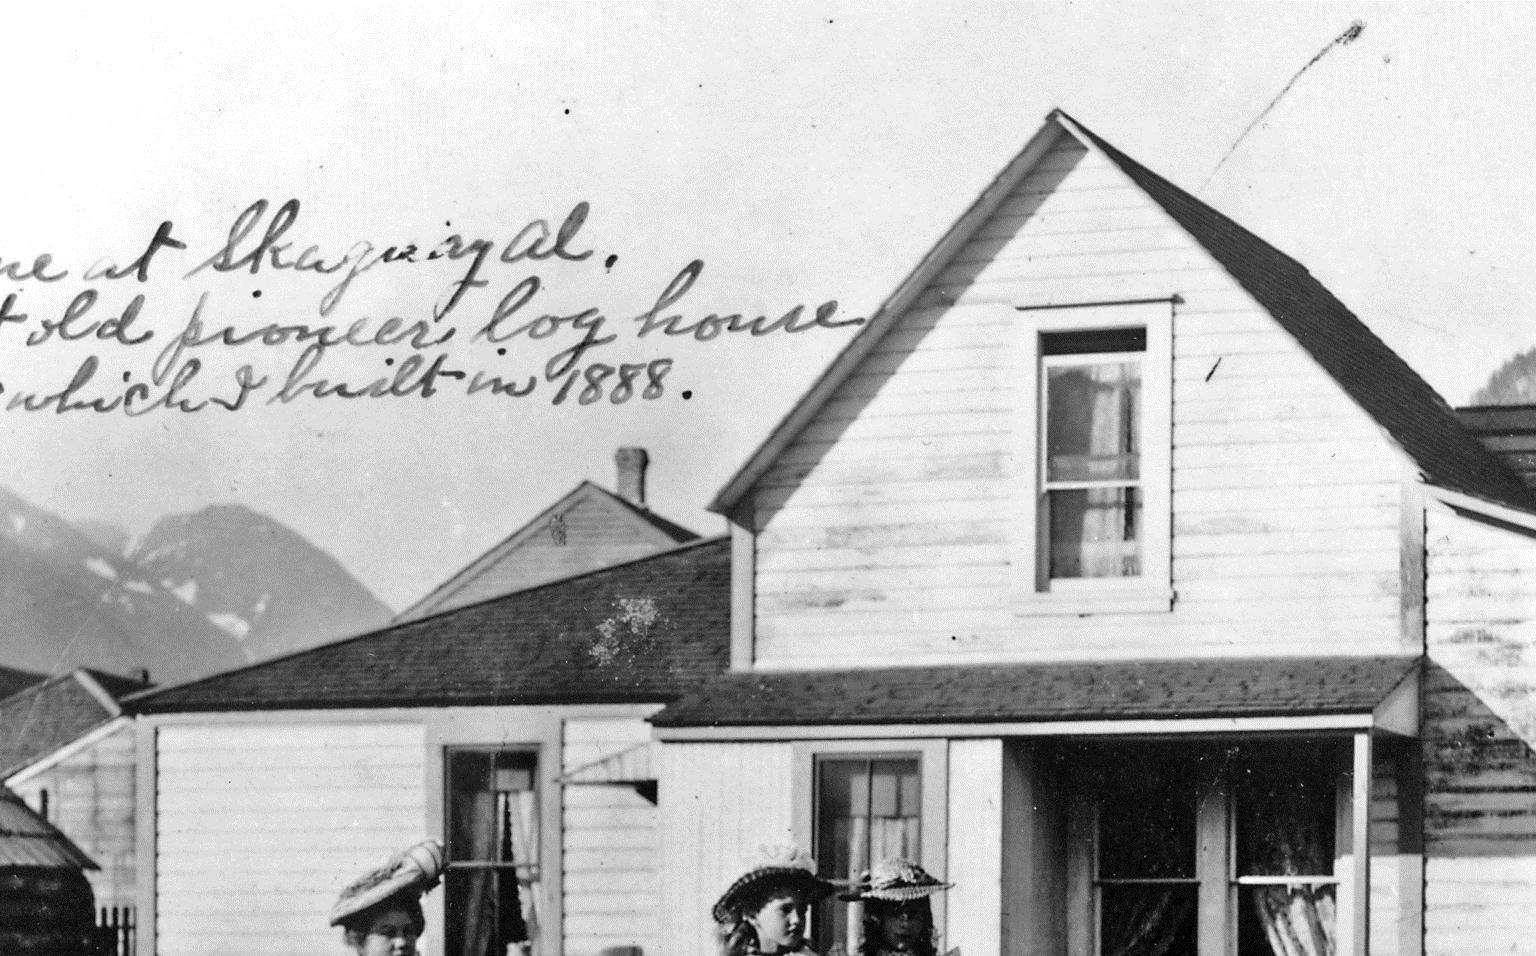 at Skaguay Al.
old pioneer log house
which I built in 1888.